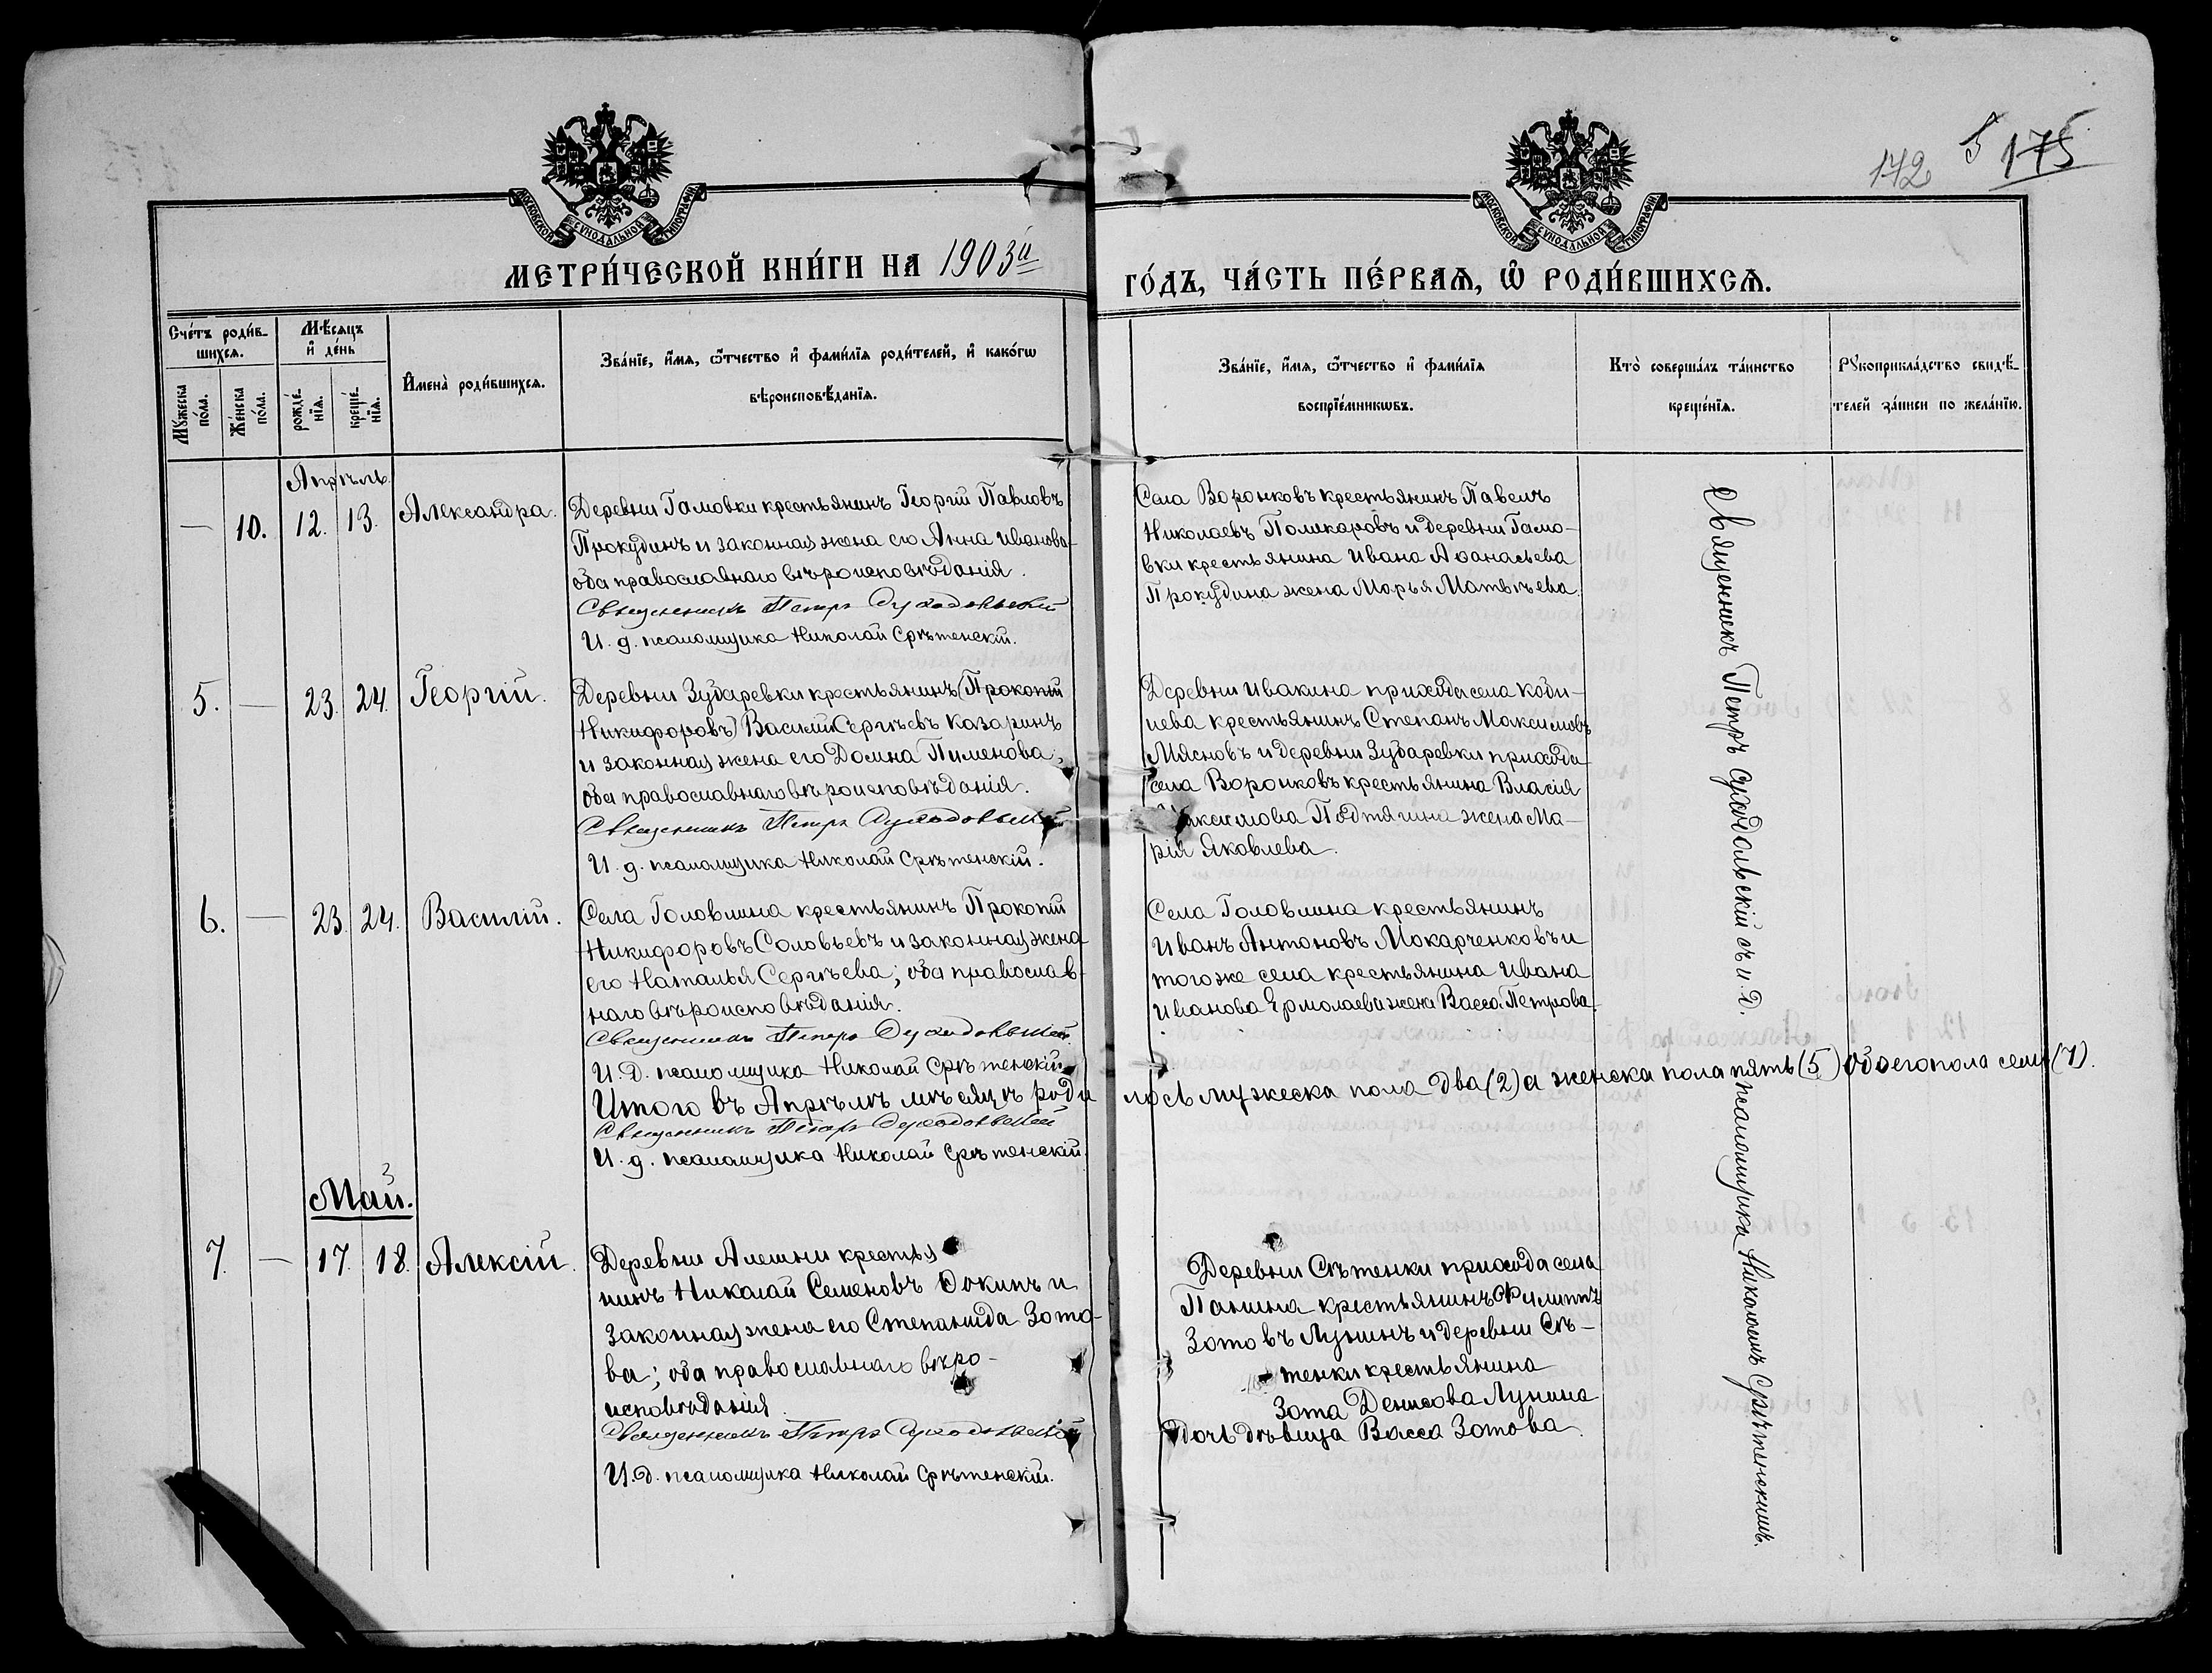 142 5 175
МОСКОВСКОЙ СѴНОДАЛЬНОЙ ТИПОГРАФІИ
МОСКОВСКОЙ СѴНОДАЛЬНОЙ ТИПОГРАФІИ
МЕТРИ́ЧЕСКОЙ КНИ́ГИ НА 1903й
ГО́ДЪ, ЧА́СТЬ ПЕ́РВАѦ, Ѽ РОДИ́ВШИХСѦ.
Сче́тъ роди́в-
шихсѧ.
Мꙋ́жеска по́ла.
Же́нска по́ла.
Мѣ́сѧцъ
и҆ де́нь
рожде́-нїѧ.
креще́-нїѧ.
И҆мена̀ роди́вшихсѧ.
Зва́нїе, и҆́мѧ, ѻ҆́тчество и҆ фами́лїѧ роди́телей, и҆ како́гѡ
вѣроисповѣ́данїѧ.
Зва́нїе, и҆́мѧ, ѻ҆́тчество и҆ фами́лїѧ
воспрїе́мникѡвъ.
Кто̀ соверша́лъ та́инство
креще́нїѧ.
Рꙋкоприкла́дство свидѣ́-
телей за́писи по жела́нїю.
Апрѣль.
— 10. 12. 13. Александра.
Деревни Гамовки крестьянинъ Георгій Павловъ
Прокудинъ и законная жена его Анна Иванова
оба православнаго вѣроисповѣданія.
Священникъ Петръ Суходольскій
И. д. псаломщика Николай Срѣтенскій.
Села Воронковъ крестьянинъ Павелъ
Николаевъ Поликаровъ и деревни Гамо-
вки крестьянина Ивана Аѳанасьева
Прокудина жена Марья Матвѣева.
5. — 23. 24. Георгій.
Деревни Зубаревки крестьянинъ (Прокопій
Никифоровъ) Василій Сергѣевъ Казаринъ
и законная жена его Домна Пименова;
оба православнаго вѣроисповѣданія.
Священникъ Петръ Суходольскій
И. д. псаломщика Николай Срѣтенскій.
Деревни Ивакина прихода села Коби-
лева крестьянинъ Степанъ Максимовъ
Мясновъ и деревни Зубаревки прихода
села Воронковъ крестьянина Власія
Максимова Подтягина жена Ма-
рія Яковлева.
6. — 23. 24. Василій.
Села Головлина крестьянинъ Прокопій
Никифоровъ Соловьевъ и законная жена
его Наталья Сергѣева; оба православ-
наго вѣроисповѣданія.
Священникъ Петръ Суходольскій.
И. д. псаломщика Николай Срѣтенскій.
Села Головлина крестьянинъ
Иванъ Антоновъ Мокарченковъ и
того же села крестьянина Ивана
Иванова Ермолаева жена Васса Петрова.
Итого въ Апрѣлѣ мѣсяцѣ роди
лось мужеска пола два (2) а женска пола пять (5) обоего пола семь (7).
Священникъ Петръ Суходольскій
И. д. псаломщика Николай Срѣтенскій.
3
Май.
7. — 17. 18. Алексій.
Деревни Алешни крестья
нинъ Николай Семеновъ Ѳокинъ и
законная жена его Степанида Зото-
ва; оба православнаго вѣро-
исповѣданія.
Священникъ Петръ Суходольскій
И. д. псаломщика Николай Срѣтенскій.
Деревни Сѣтенки прихода села
Панина крестьянинъ Филиппъ
Зотовъ Лунинъ и деревни Сѣ-
тенки крестьянина
Зота Денисова Лунина
дочь дѣвица Васса Зотова.
Священникъ Петръ Суходольскій съ и. д.
псаломщика Николаемъ Срѣтенскимъ.